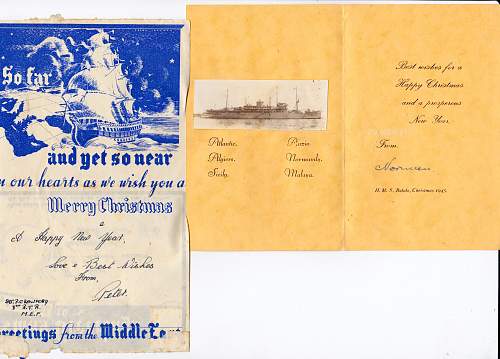 So far
and yet so near
our hearts as we wish you a
Merry Christmas
&
A Happy New Year,
Love & Best Wishes
From,
Peter.
M.E.F.
reetings from the Middle
Atlantic,
Algiers,
Sicily,
Anzio,
Normandy,
Malaya.
Best wishes for a
Happy Christmas
and a prosperous
New Year.
From,
Norman
H.M.S. Bulolo, Christmas 1945.